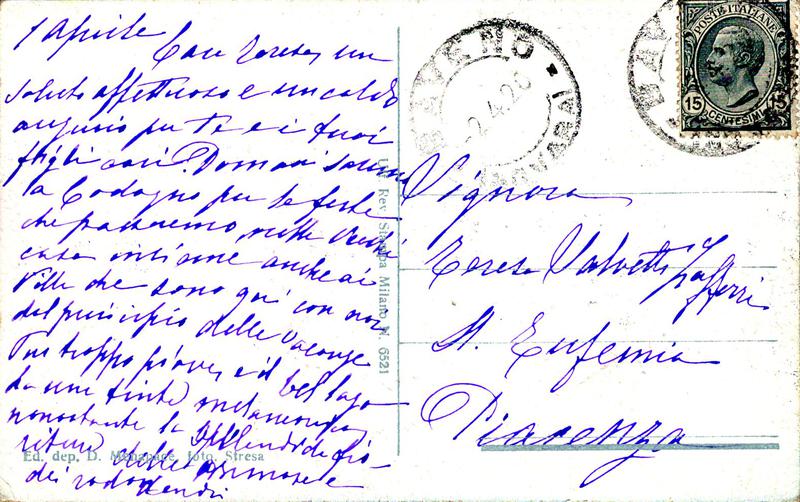 1 Aprile
Cara Teresa, un
saluto affettuoso e un caldo
augurio per Te e i tuoi
figli cari. Domani saremo
a Codogno per le feste
che passeremo nella vecchia
casa insieme anche ai
Villa che sono qui con noi
dal principio delle Vacanze
Pur troppo piove, e il bel lago
da una tinta
nonostante la splendida fio-
ritura delle mimose e
dei rododendri
Signora
Teresa Valvetti Zafferri
S. Eufemia
Piacenza
BAVENO
2.4.20
(NOVARA)
BAVENO
POSTE ITALIANE
15 CENTESIMI 15
Rev. Stampa Milano N. 6521
Ed. dep. D. Menapace, foto. Stresa